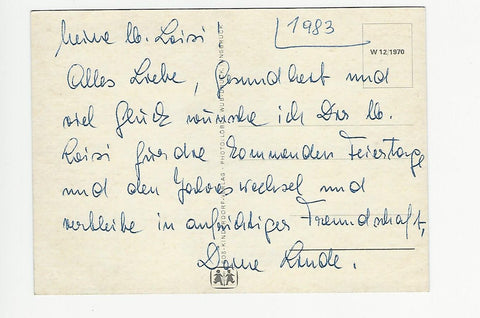 Meine lb. Loisi
1983
W 12/1970
Alles Liebe, Gesundheit und
viel Glück wünsche ich Dir lb.
Loisi für die kommenden Feiertage
und den Jahreswechsel und
verbleibe in aufrichtiger Freundschaft,
Deine